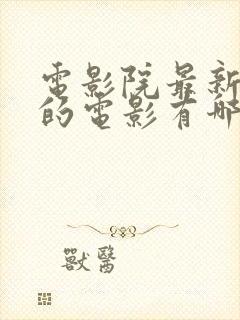 電影院最新
的電影有哪
獸醫